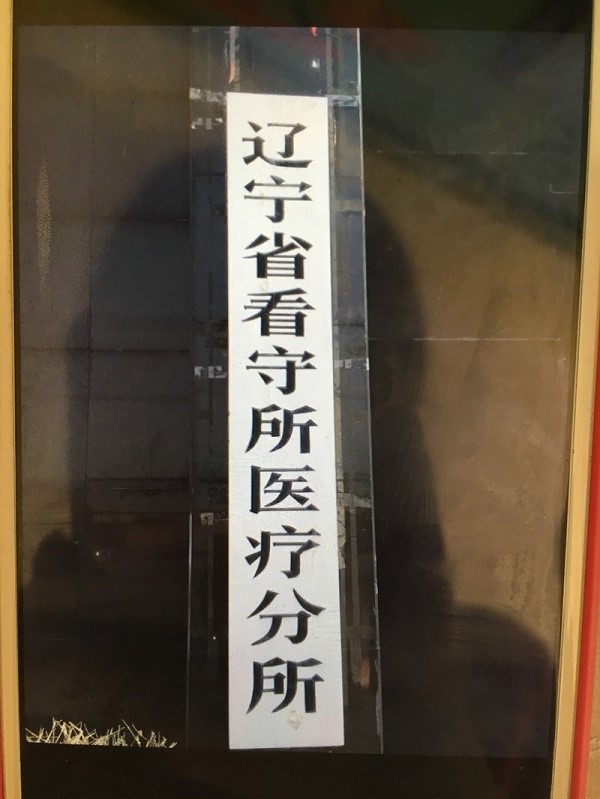 辽宁省看守所医疗分所